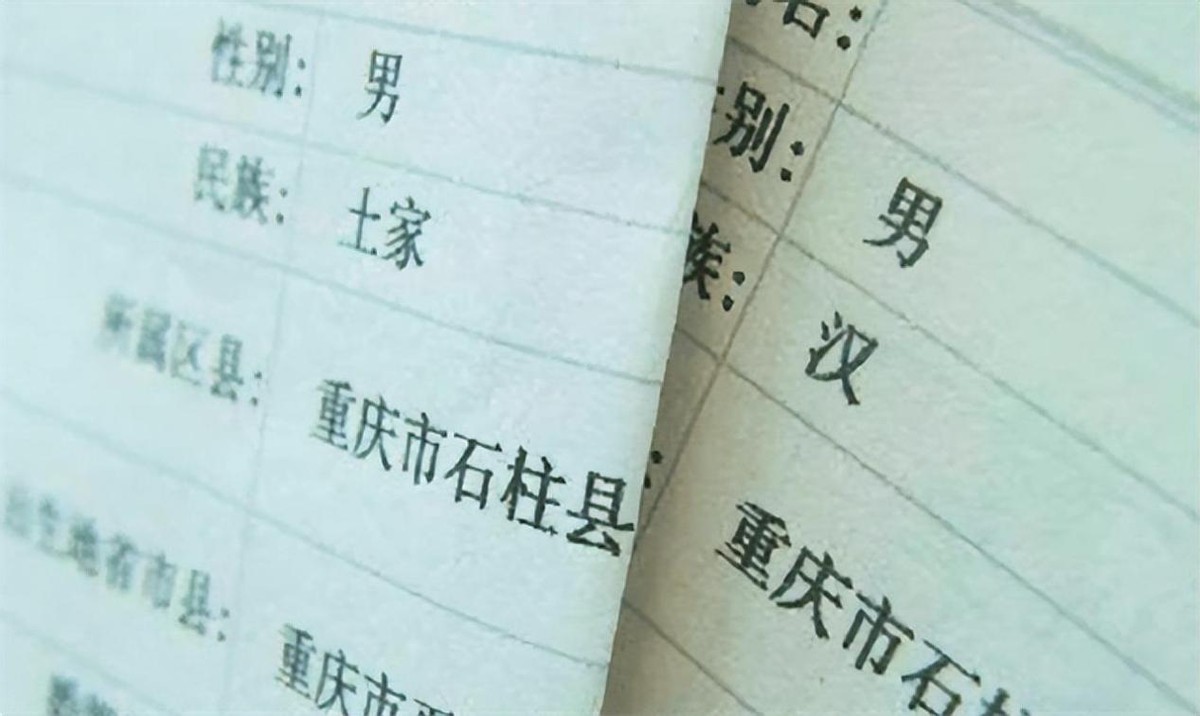 性别： 男
民族： 土家
所属区县： 重庆市石柱县
出生地省市县： 重庆市石
名：
性别： 男
族： 汉
重庆市石柱